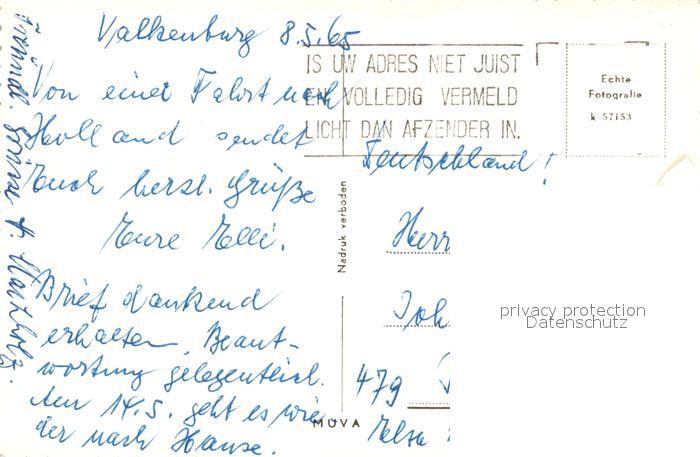 Valkenburg 8.5.65
Von einer Fahrt nach
Holland sendet
Euch herzl. Grüße
Eure Elli.
Brief dankend
erhalten. Beant-
wortung gelegentlich.
Am 14.5. geht es wie
der nach Hause.
IS UW ADRES NIET JUIST
EN VOLLEDIG VERMELD
LICHT DAN AFZENDER IN.
Echte
Fotografie
k 57153
Deutschland!
Nadruk verboden
Herr
Joh
privacy protection
Datenschutz
479
MUVA